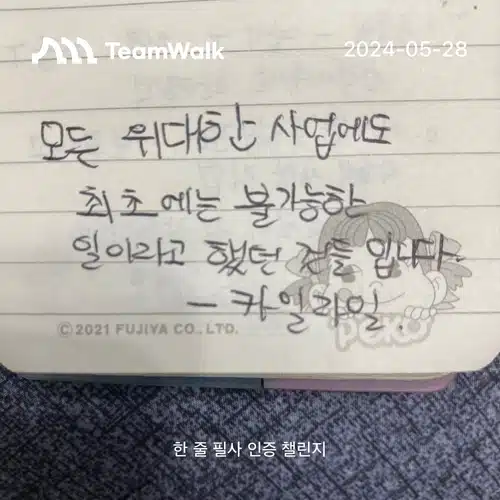 TeamWalk
2024-05-28
모든 위대한 사업에도
최초에는 불가능한
일이라고 했던 것들 입니다
- 카알라일.
© 2021 FUJIYA CO., LTD.
PEKO
한 줄 필사 인증 챌린지